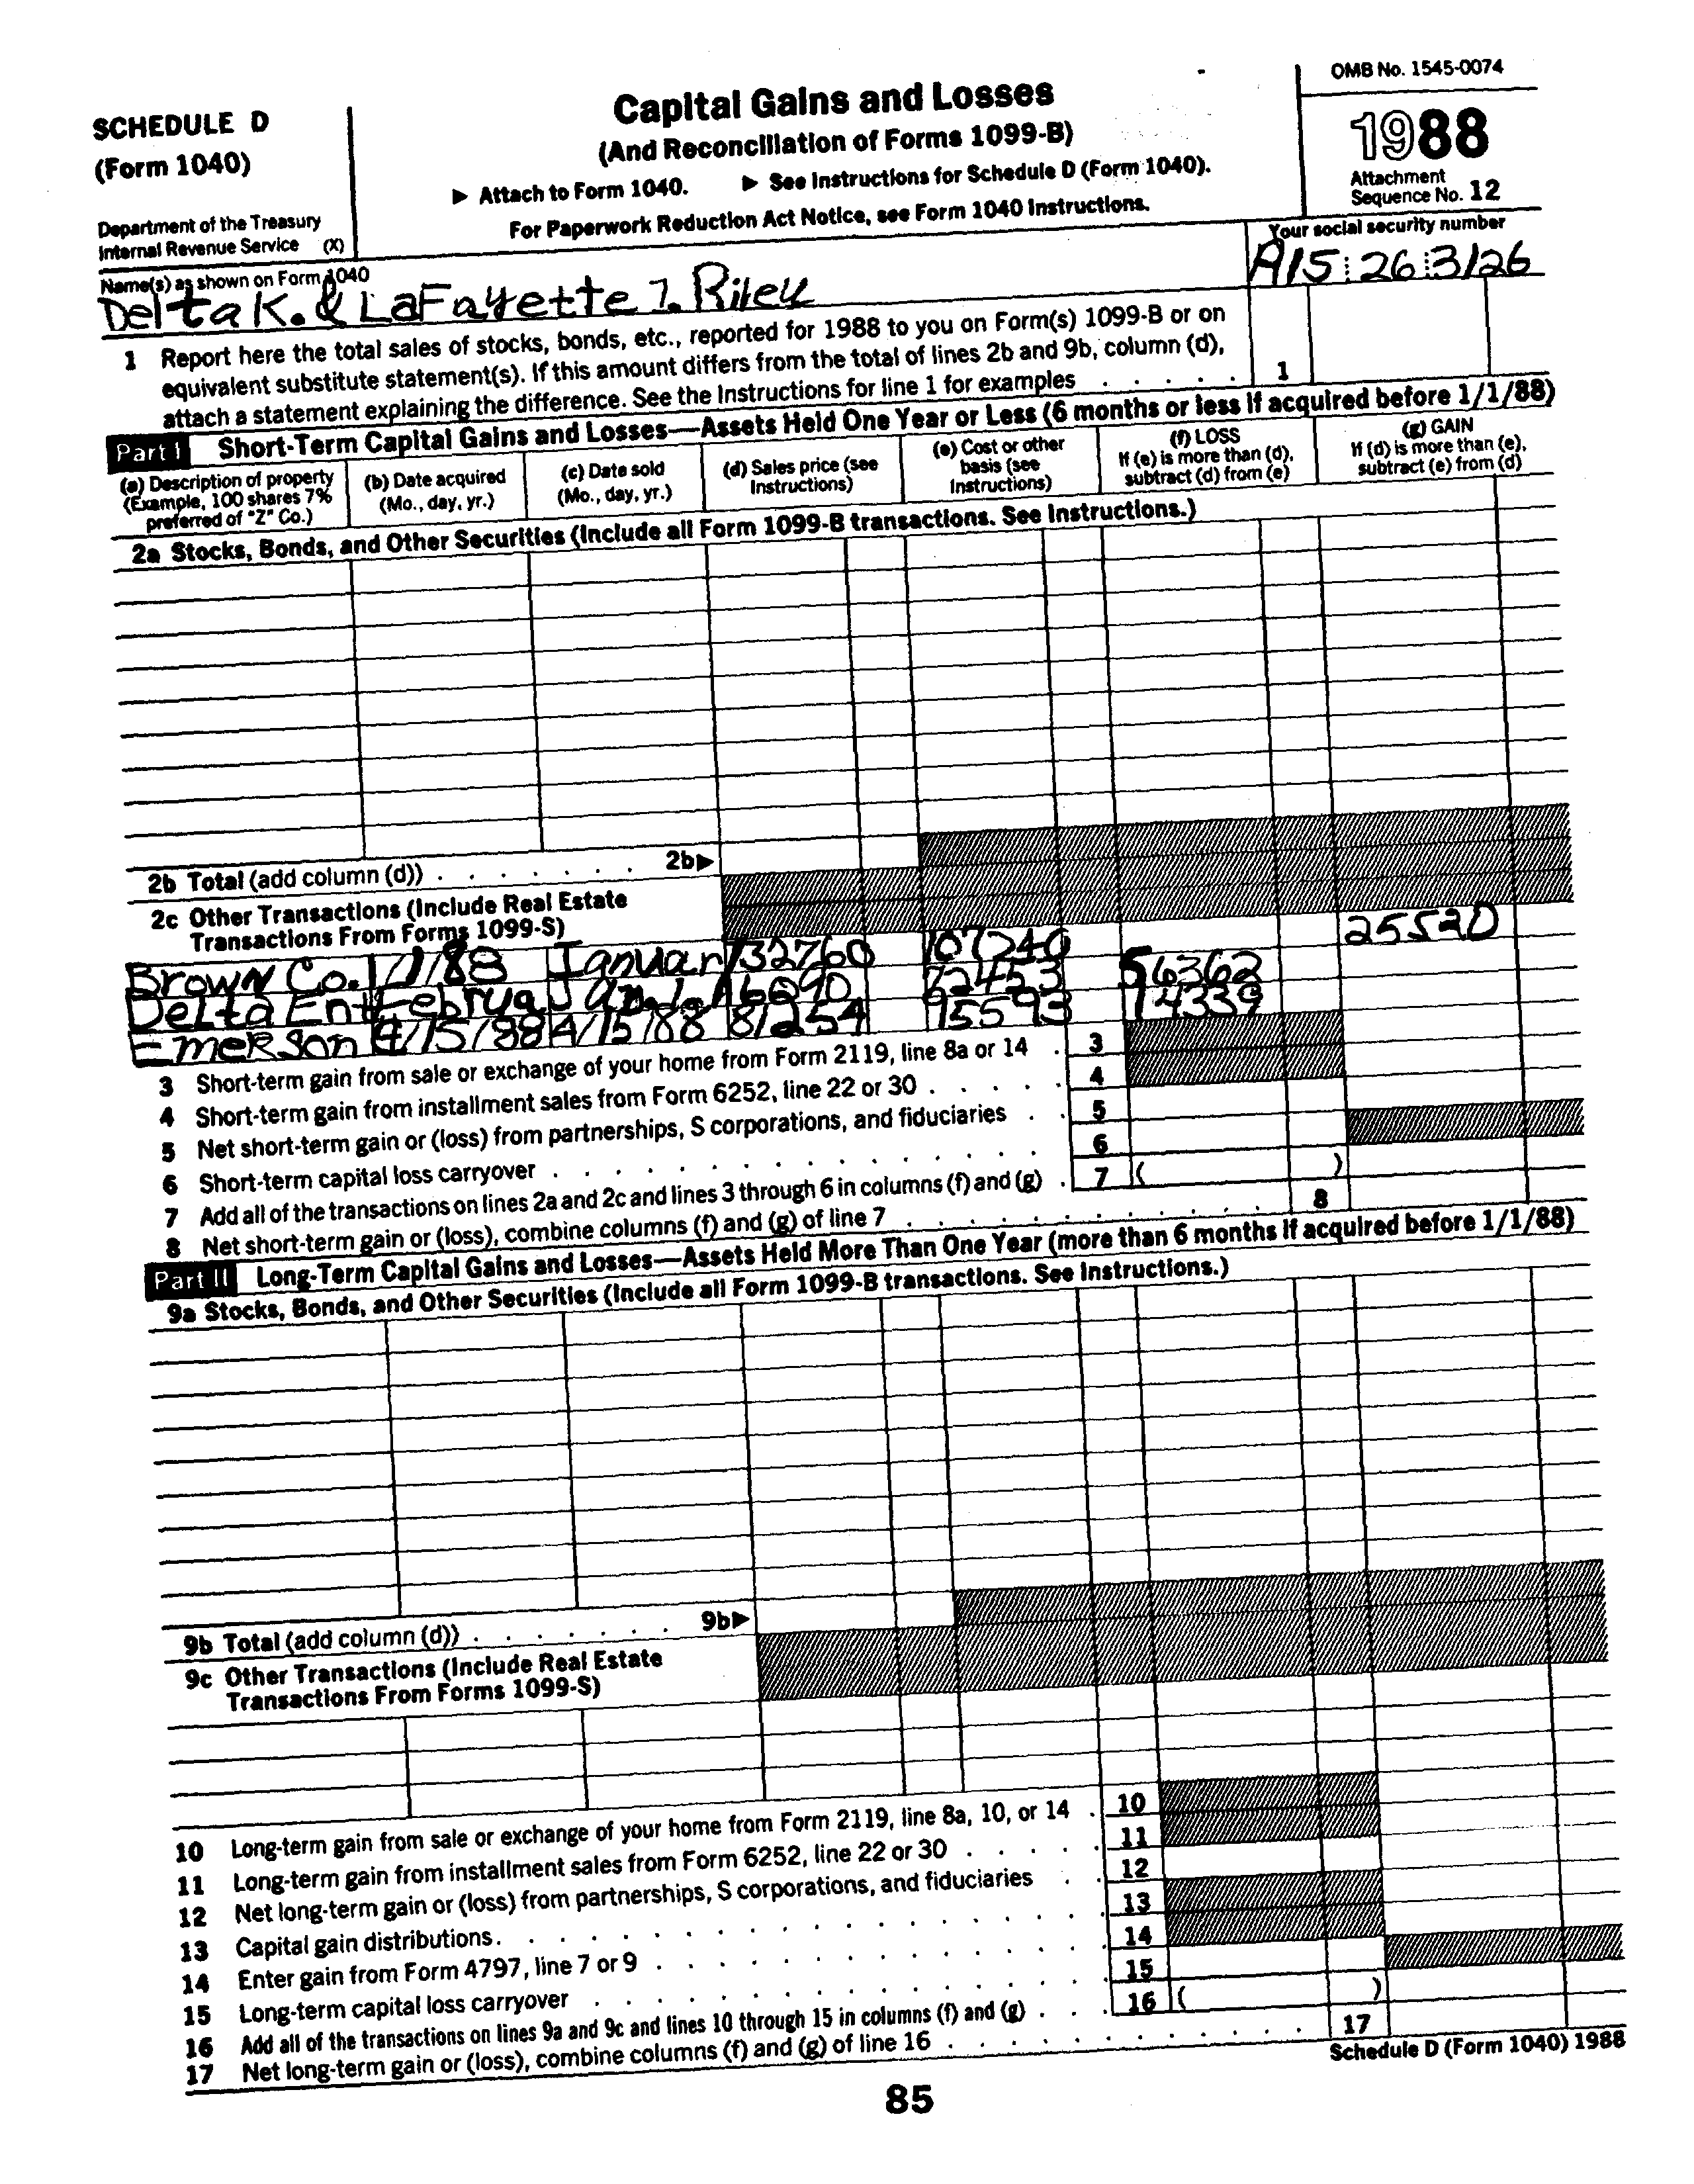 SCHEDULE D
(Form 1040)
Department of the Treasury
Internal Revenue Service (X)
Capital Gains and Losses
(And Reconciliation of Forms 1099-B)
▶ Attach to Form 1040. ▶ See Instructions for Schedule D (Form 1040).
For Paperwork Reduction Act Notice, see Form 1040 Instructions.
OMB No. 1545-0074
1988
Attachment
Sequence No. 12
Name(s) as shown on Form 1040
Delta K. & LaFayette J. Riley
Your social security number
A15 26 3126
1 Report here the total sales of stocks, bonds, etc., reported for 1988 to you on Form(s) 1099-B or on
equivalent substitute statement(s). If this amount differs from the total of lines 2b and 9b, column (d),
attach a statement explaining the difference. See the Instructions for line 1 for examples . . . . . 1
Part I Short-Term Capital Gains and Losses—Assets Held One Year or Less (6 months or less if acquired before 1/1/88)
(a) Description of property
(Example, 100 shares 7%
preferred of "Z" Co.)
(b) Date acquired
(Mo., day, yr.)
(c) Date sold
(Mo., day, yr.)
(d) Sales price (see
Instructions)
(e) Cost or other
basis (see
Instructions)
(f) LOSS
If (e) is more than (d),
subtract (d) from (e)
(g) GAIN
If (d) is more than (e),
subtract (e) from (d)
2a Stocks, Bonds, and Other Securities (Include all Form 1099-B transactions. See Instructions.)
2b Total (add column (d)) . . . . . . . 2b▶
2c Other Transactions (Include Real Estate
Transactions From Forms 1099-S)
Brown Co. 1/1/88 Januar 132760 107240 25520
Delta Ent Februa Jan. 1, 16090 72453 56362
Emerson 4/15/88 4/15/88 81254 95593 14339
3 Short-term gain from sale or exchange of your home from Form 2119, line 8a or 14 . 3
4 Short-term gain from installment sales from Form 6252, line 22 or 30 . . . . . 4
5 Net short-term gain or (loss) from partnerships, S corporations, and fiduciaries . . 5
6 Short-term capital loss carryover . . . . . . . . . . . . . . . . 6
7 Add all of the transactions on lines 2a and 2c and lines 3 through 6 in columns (f) and (g) . 7 ( )
8 Net short-term gain or (loss), combine columns (f) and (g) of line 7 . . . . . . . . . . . . . 8
Part II Long-Term Capital Gains and Losses—Assets Held More Than One Year (more than 6 months if acquired before 1/1/88)
9a Stocks, Bonds, and Other Securities (Include all Form 1099-B transactions. See Instructions.)
9b Total (add column (d)) . . . . . . . 9b▶
9c Other Transactions (Include Real Estate
Transactions From Forms 1099-S)
10 Long-term gain from sale or exchange of your home from Form 2119, line 8a, 10, or 14 . 10
11 Long-term gain from installment sales from Form 6252, line 22 or 30 . . . . . 11
12 Net long-term gain or (loss) from partnerships, S corporations, and fiduciaries . . 12
13 Capital gain distributions. . . . . . . . . . . . . . . . . 13
14 Enter gain from Form 4797, line 7 or 9 . . . . . . . . . . . . . 14
15 Long-term capital loss carryover . . . . . . . . . . . . . . . 15
16 Add all of the transactions on lines 9a and 9c and lines 10 through 15 in columns (f) and (g) . . . 16 ( )
17 Net long-term gain or (loss), combine columns (f) and (g) of line 16 . . . . . . . . . . . . 17
Schedule D (Form 1040) 1988
85